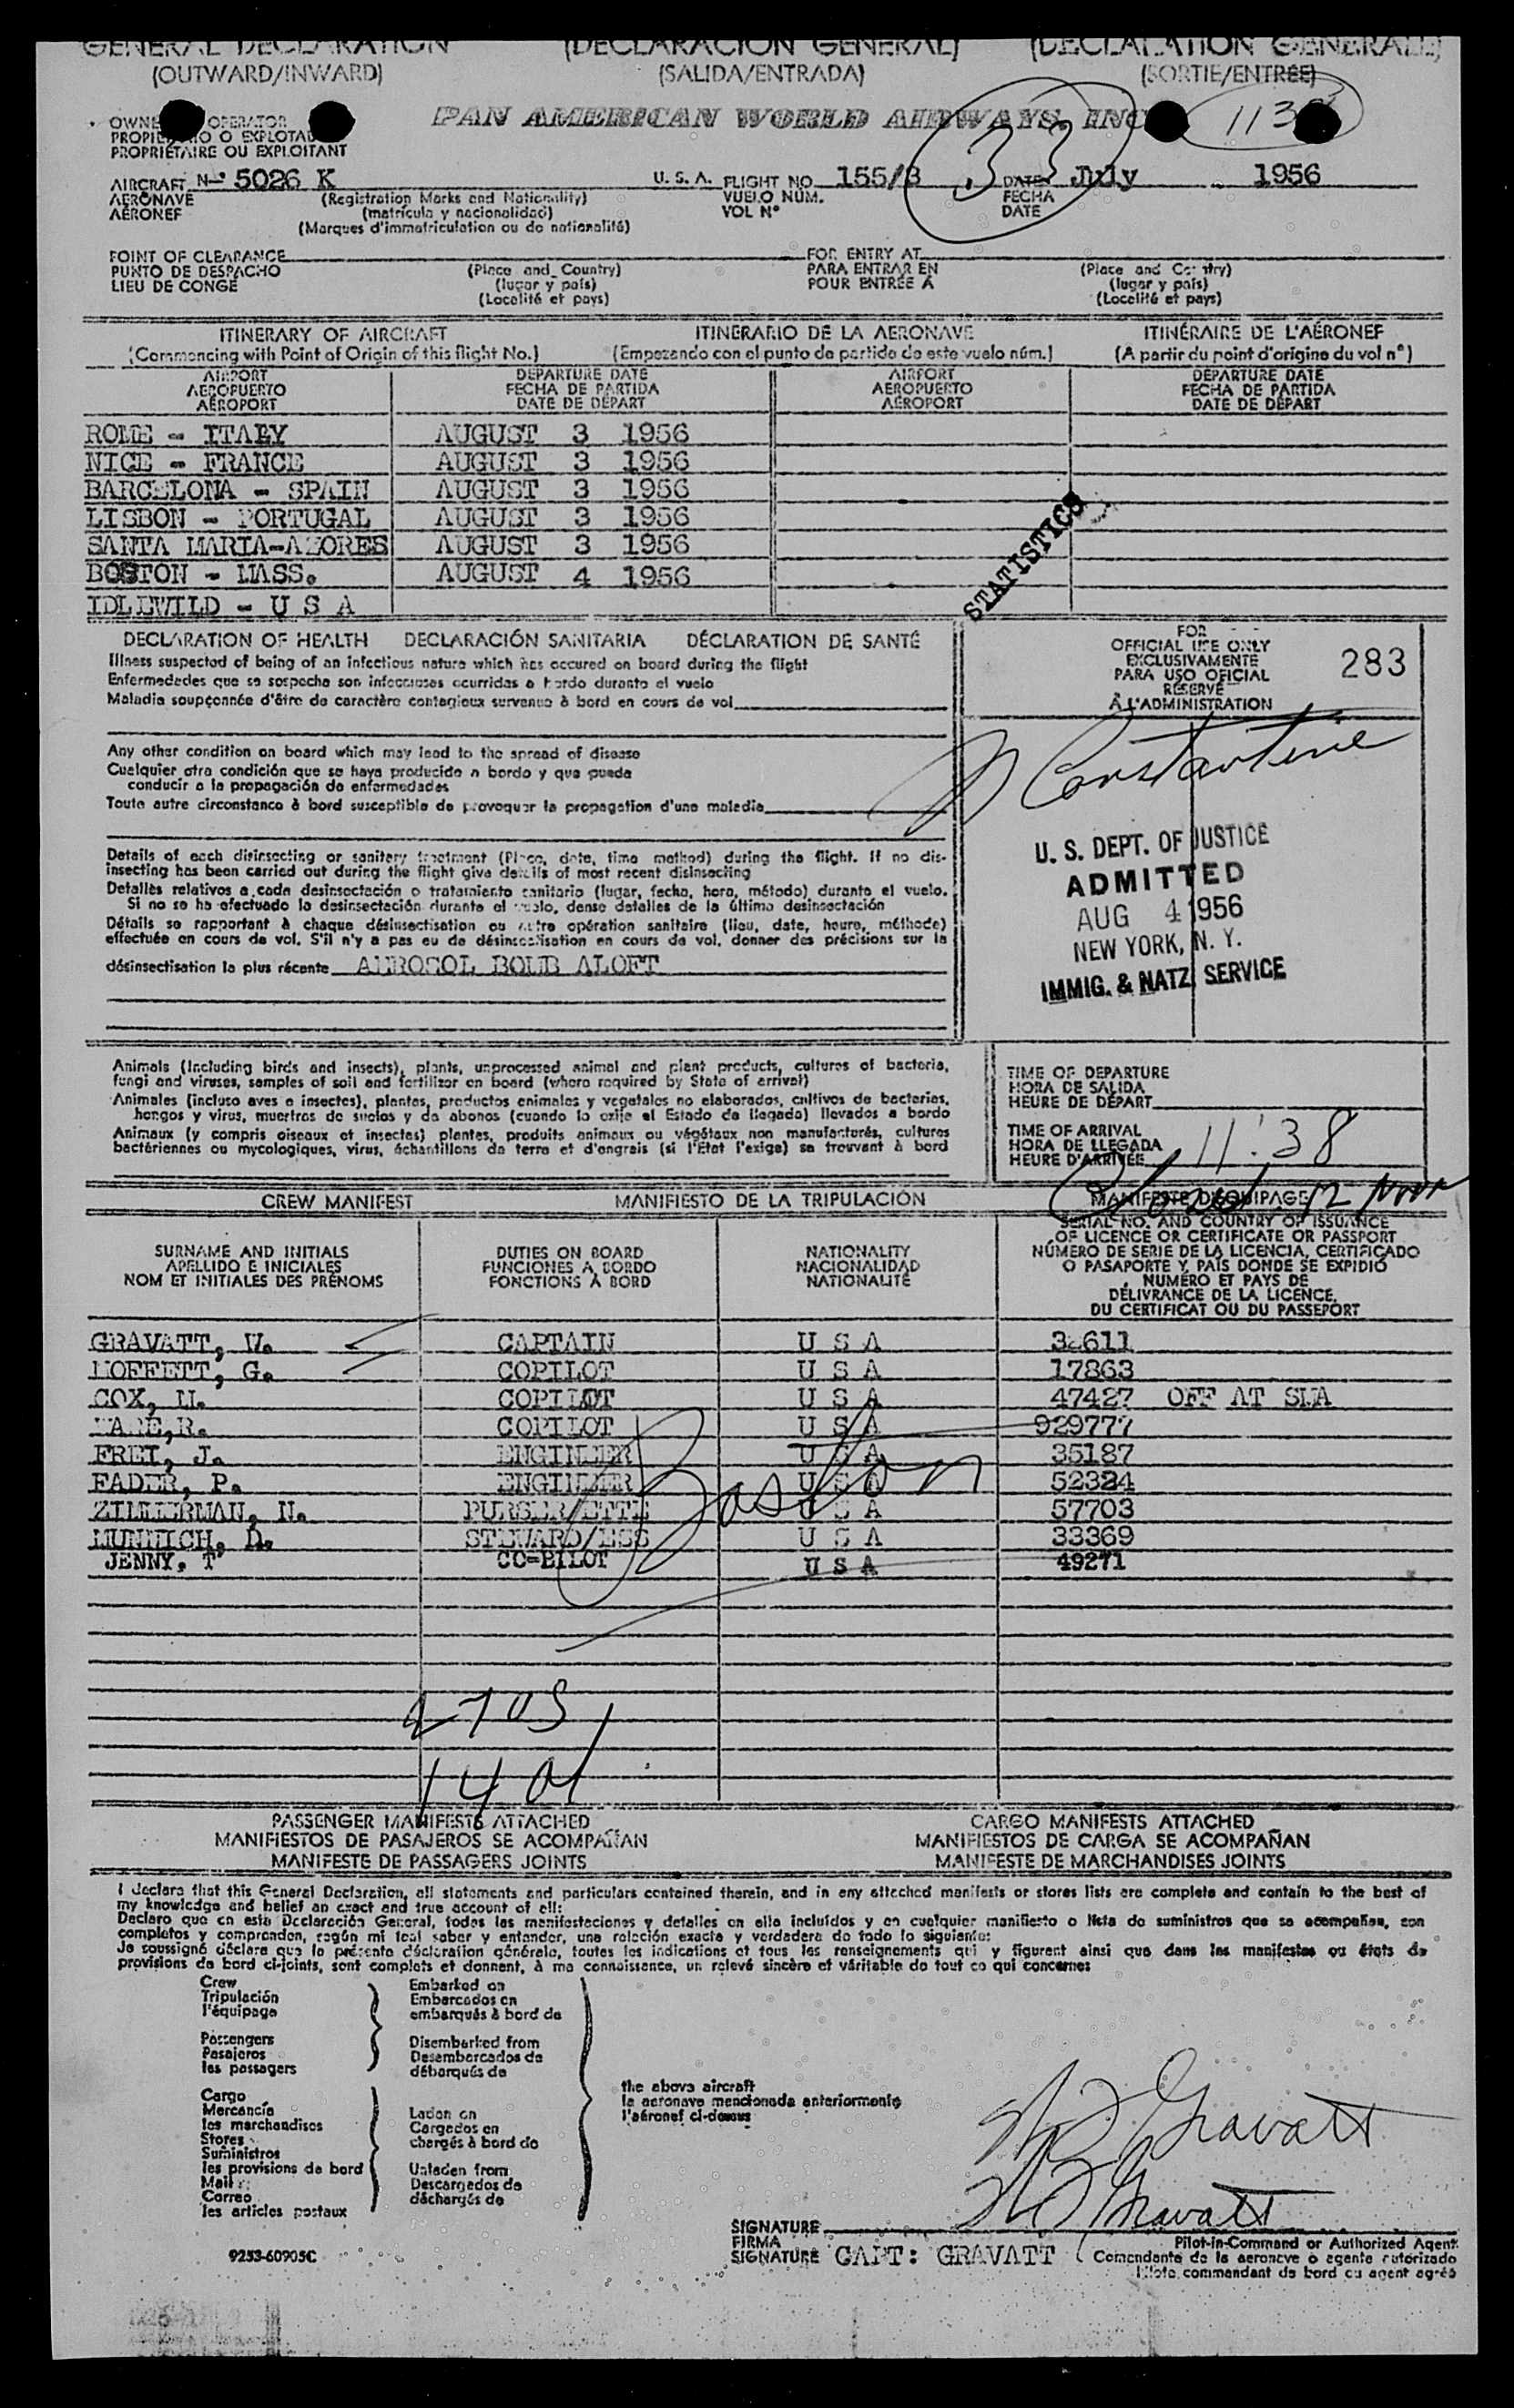 GENERAL DECLARATION (DECLARACION GENERAL) (DECLARATION GENERALE)
(OUTWARD/INWARD) (SALIDA/ENTRADA) (SORTIE/ENTRÉE)
OPERATOR PAN AMERICAN WORLD AIRWAYS, INC 113
O EXPLOTA
PROPRIÉTAIRE OU EXPLOITANT
33
AIRCRAFT N-' 5026 K U. S. A. FLIGHT NO. 155/3 DATE July 1956
AERONAVE (Registration Marks and Nationality) VUELO NÚM. FECHA
AÉRONEF (matrícula y nacionalidad) VOL Nº DATE
(Marques d'immatriculation ou de nationalité)
POINT OF CLEARANCE FOR ENTRY AT
PUNTO DE DESPACHO (Place and Country) PARA ENTRAR EN (Place and Country)
LIEU DE CONGÉ (lugar y país) POUR ENTRÉE À (lugar y país)
(Localité et pays) (Localité et pays)
ITINERARY OF AIRCRAFT ITINERARIO DE LA AERONAVE ITINÉRAIRE DE L'AÉRONEF
(Commencing with Point of Origin of this flight No.) (Empezando con el punto de partida de este vuelo núm.) (A partir du point d'origine du vol nº)
AIRPORT DEPARTURE DATE AIRPORT DEPARTURE DATE
AEROPUERTO FECHA DE PARTIDA AEROPUERTO FECHA DE PARTIDA
AÉROPORT DATE DE DÉPART AÉROPORT DATE DE DÉPART
ROME - ITALY AUGUST 3 1956
NICE - FRANCE AUGUST 3 1956
BARCELONA - SPAIN AUGUST 3 1956
LISBON - PORTUGAL AUGUST 3 1956
SANTA MARIA-AZORES AUGUST 3 1956
BOSTON - MASS. AUGUST 4 1956
IDLEWILD - U S A
STATISTICS
DECLARATION OF HEALTH DECLARACIÓN SANITARIA DÉCLARATION DE SANTÉ
Illness suspected of being of an infectious nature which has occured on board during the flight
Enfermedades que se sospecha son infecciosas ocurridas a bordo durante el vuelo
Maladie soupçonnée d'être de caractère contagieux survenue à bord en cours de vol
FOR
OFFICIAL USE ONLY
EXCLUSIVAMENTE
PARA USO OFICIAL
RÉSERVÉ
À L'ADMINISTRATION
283
Any other condition on board which may lead to the spread of disease
Cualquier otra condición que se haya producido a bordo y que pueda
conducir a la propagación de enfermedades
Toute autre circonstance à bord susceptible de provoquer la propagation d'une maladie
Constantine
Details of each disinsecting or sanitary treatment (Place, date, time method) during the flight. If no dis-
insecting has been carried out during the flight give details of most recent disinsecting
Detalles relativos a cada desinsectación o tratamiento sanitario (lugar, fecha, hora, método) durante el vuelo.
Si no se ha efectuado la desinsectación durante el vuelo, dense detalles de la última desinsectación
Détails se rapportant à chaque désinsectisation ou autre opération sanitaire (lieu, date, heure, méthode)
effectuée en cours de vol. S'il n'y a pas eu de désinsectisation en cours de vol, donner des précisions sur la
désinsectisation la plus récente AEROSOL BOMB ALOFT
U. S. DEPT. OF JUSTICE
ADMITTED
AUG 4 1956
NEW YORK, N. Y.
IMMIG. & NATZ. SERVICE
Animals (Including birds and insects), plants, unprocessed animal and plant products, cultures of bacteria,
fungi and viruses, samples of soil and fertilizer on board (where required by State of arrival)
Animales (incluso aves e insectos), plantas, productos animales y vegetales no elaborados, cultivos de bacterias,
hongos y virus, muestras de suelos y de abonos (cuando lo exija el Estado de llegada) llevados a bordo
Animaux (y compris oiseaux et insectes) plantes, produits animaux ou végétaux non manufacturés, cultures
bactériennes ou mycologiques, virus, échantillons de terre et d'engrais (si l'État l'exige) se trouvant à bord
TIME OF DEPARTURE
HORA DE SALIDA
HEURE DE DÉPART
TIME OF ARRIVAL
HORA DE LLEGADA
HEURE D'ARRIVÉE 11:38
12 Noon
CREW MANIFEST MANIFIESTO DE LA TRIPULACIÓN MANIFESTE D'ÉQUIPAGE
SURNAME AND INITIALS DUTIES ON BOARD NATIONALITY SERIAL NO. AND COUNTRY OF ISSUANCE
APELLIDO E INICIALES FUNCIONES A BORDO NACIONALIDAD OF LICENCE OR CERTIFICATE OR PASSPORT
NOM ET INITIALES DES PRÉNOMS FONCTIONS À BORD NATIONALITÉ NÚMERO DE SERIE DE LA LICENCIA, CERTIFICADO
O PASAPORTE Y PAÍS DONDE SE EXPIDIÓ
NUMÉRO ET PAYS DE
DÉLIVRANCE DE LA LICENCE,
DU CERTIFICAT OU DU PASSEPORT
GRAVATT, W. CAPTAIN U S A
MOFFETT, G. COPILOT U S A 17863
COX, M. COPILOT U S A 47427 OFF AT SMA
R. COPILOT U S A 929777
FREI, J. ENGINEER U S A 35187
FADER, P. ENGINEER U S A 52324
ZIMMERMAN, N. PURSER/ETTE U S A 57703
MUNNICH, D. STEWARD/ESS U S A 33369
JENNY, T CO-PILOT U S A 49271
Boston
2705
1401
PASSENGER MANIFESTS ATTACHED CARGO MANIFESTS ATTACHED
MANIFIESTOS DE PASAJEROS SE ACOMPAÑAN MANIFIESTOS DE CARGA SE ACOMPAÑAN
MANIFESTE DE PASSAGERS JOINTS MANIFESTE DE MARCHANDISES JOINTS
I declare that this General Declaration, all statements and particulars contained therein, and in any attached manifests or stores lists are complete and contain to the best of
my knowledge and belief an exact and true account of all:
Declaro que en esta Declaración General, todas las manifestaciones y detalles en ella incluídos y en cualquier manifiesto o lista de suministros que se acompañan, son
completos y comprenden, según mi leal saber y entender, una relación exacta y verdadera de todo lo siguiente:
Je soussigné déclare que la présente déclaration générale, toutes les indications et tous les renseignements qui y figurent ainsi que dans les manifestes ou états de
provisions de bord ci-joints, sont complets et donnent, à ma connaissance, un relevé sincère et véritable de tout ce qui concerne:
Crew Embarked on
Tripulación Embarcados en
l'équipage embarqués à bord de
Passengers Disembarked from
Pasajeros Desembarcados de
les passagers débarqués de
the above aircraft
la aeronave mencionada anteriormente
l'aéronef ci-dessus
Cargo
Mercancía Laden on
les marchandises Cargados en
Stores chargés à bord de
Suministros
les provisions de bord Unladen from
Mail Descargados de
Correo déchargés de
les articles postaux
W J Gravatt
W J Gravatt
SIGNATURE
FIRMA Pilot-in-Command or Authorized Agent
SIGNATURE CAPT: GRAVATT Comandante de la aeronave o agente autorizado
Pilote commandant de bord ou agent agréé
9253-60905C